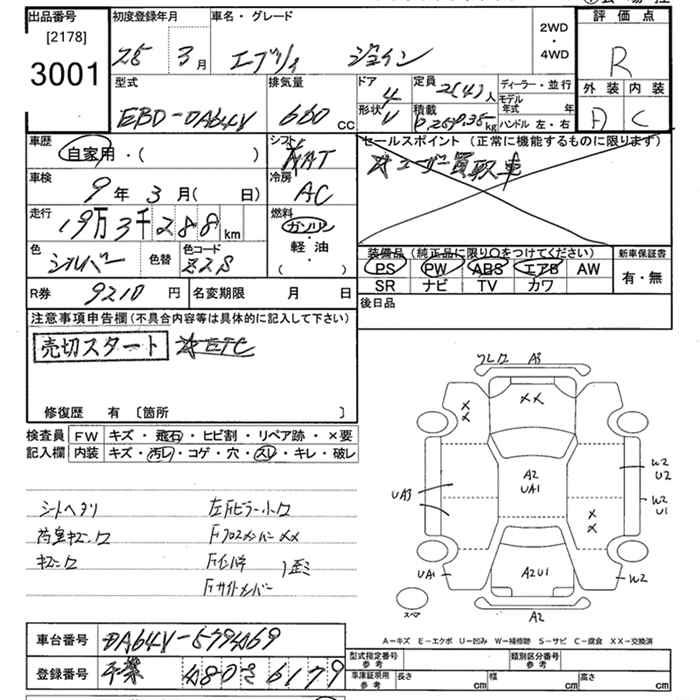 出品番号 初度登録年月 車名・グレード 評価点
[2178]
3001
25年 3月 エブリィ ジョイン 2WD・4WD R
型式 排気量 ドア 定員 ディーラー・並行 外装 内装
EBD-DA64V 660cc 4 2(4)人 モデル年式 年 D C
形状 V 積載 kg ハンドル 左・右
車歴 自家用・( ) シフト AT セールスポイント(正常に機能するものに限ります)
ユーザー買取車
車検 9年 3月( 日) 冷房 AC
走行 19万3千288km 燃料 ガソリン・軽油( )
色 シルバー 色替 色コード Z2S
装備品(純正品に限り〇をつけてください) 新車保証書
PS PW ABS エアB AW 有・無
SR ナビ TV カワ
R券 9210円 名変期限 月 日 後日品
注意事項申告欄(不具合内容等は具体的に記入して下さい)
売切スタート ETC
修復歴 有 〔箇所 〕
検査員 FW キズ・飛石・ヒビ割・リペア跡・×要
記入欄 内装 キズ・汚レ・コゲ・穴・スレ・キレ・破レ
シートヘタリ 左Fピラー小ワ
荷室キズ、ワ Fクロスメンバー××
キズ、ワ 歪ミ
Fサイドメンバー
ワレワ A3
××
×
×
A2
UA1
W2
U2
UA3
W2
U1
×
×
UA1
A2U1
W2
スペア
A2
A=キズ E=エクボ U=凹み W=補修跡 S=サビ C=腐食 XX=交換済
車台番号 DA64V-579469
登録番号 千葉 480 さ 6179
型式指定番号 参考 類別区分番号 参考
車庫証明用 参考 長さ cm 幅 cm 高さ cm